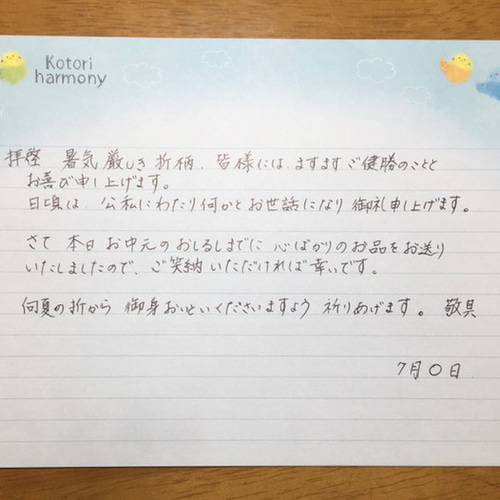 Kotori
harmony
拝啓 暑気厳しき折柄、皆様には、ますますご健勝のことと
お喜び申し上げます。
日頃は、公私にわたり何かとお世話になり 御礼申し上げます。
さて 本日 お中元のおしるしまでに 心ばかりのお品をお送り
いたしましたので、ご笑納いただければ幸いです。
向夏の折から 御身おいといくださいますよう 祈りあげます。 敬具
7月〇日